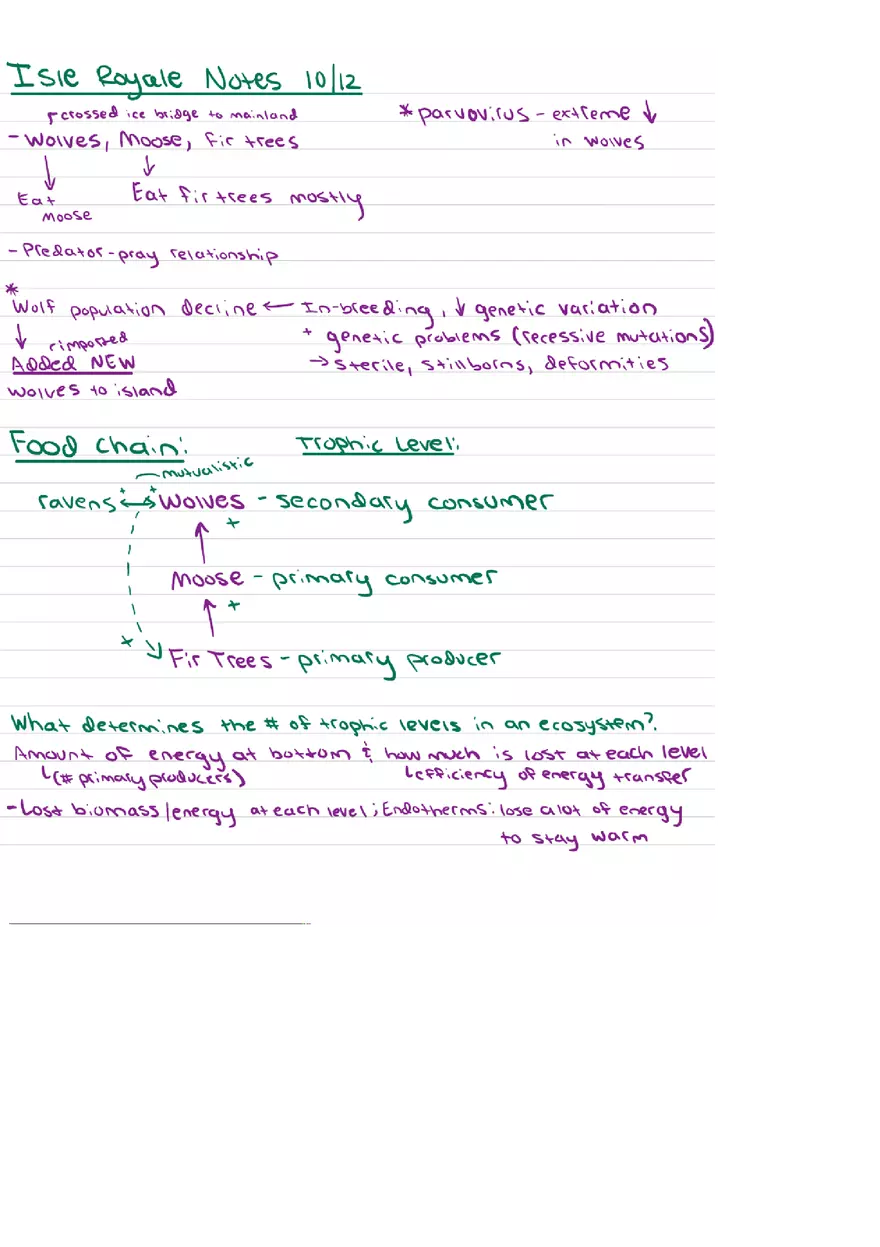 Isle Royale Notes 10/12
crossed ice bridge to mainland
* parvovirus - extreme ↓
- Wolves, Moose, fir trees
in wolves
Eat
Moose
Eat fir trees mostly
- Predator-pray relationship
*
Wolf population decline ← In-breeding, ↓ genetic variation
+ genetic problems (recessive mutations)
↓ imported
Added NEW
→ sterile, stillborns, deformities
wolves to island
Food Chain: Trophic Level:
mutualistic
ravens ↔ Wolves - secondary consumer
+ +
+
Moose - primary consumer
+
+
Fir Trees - primary producer
What determines the # of trophic levels in an ecosystem?
Amount of energy at bottom & how much is lost at each level
(# primary producers) efficiency of energy transfer
- Lost biomass/energy at each level; Endotherms: lose a lot of energy
to stay warm